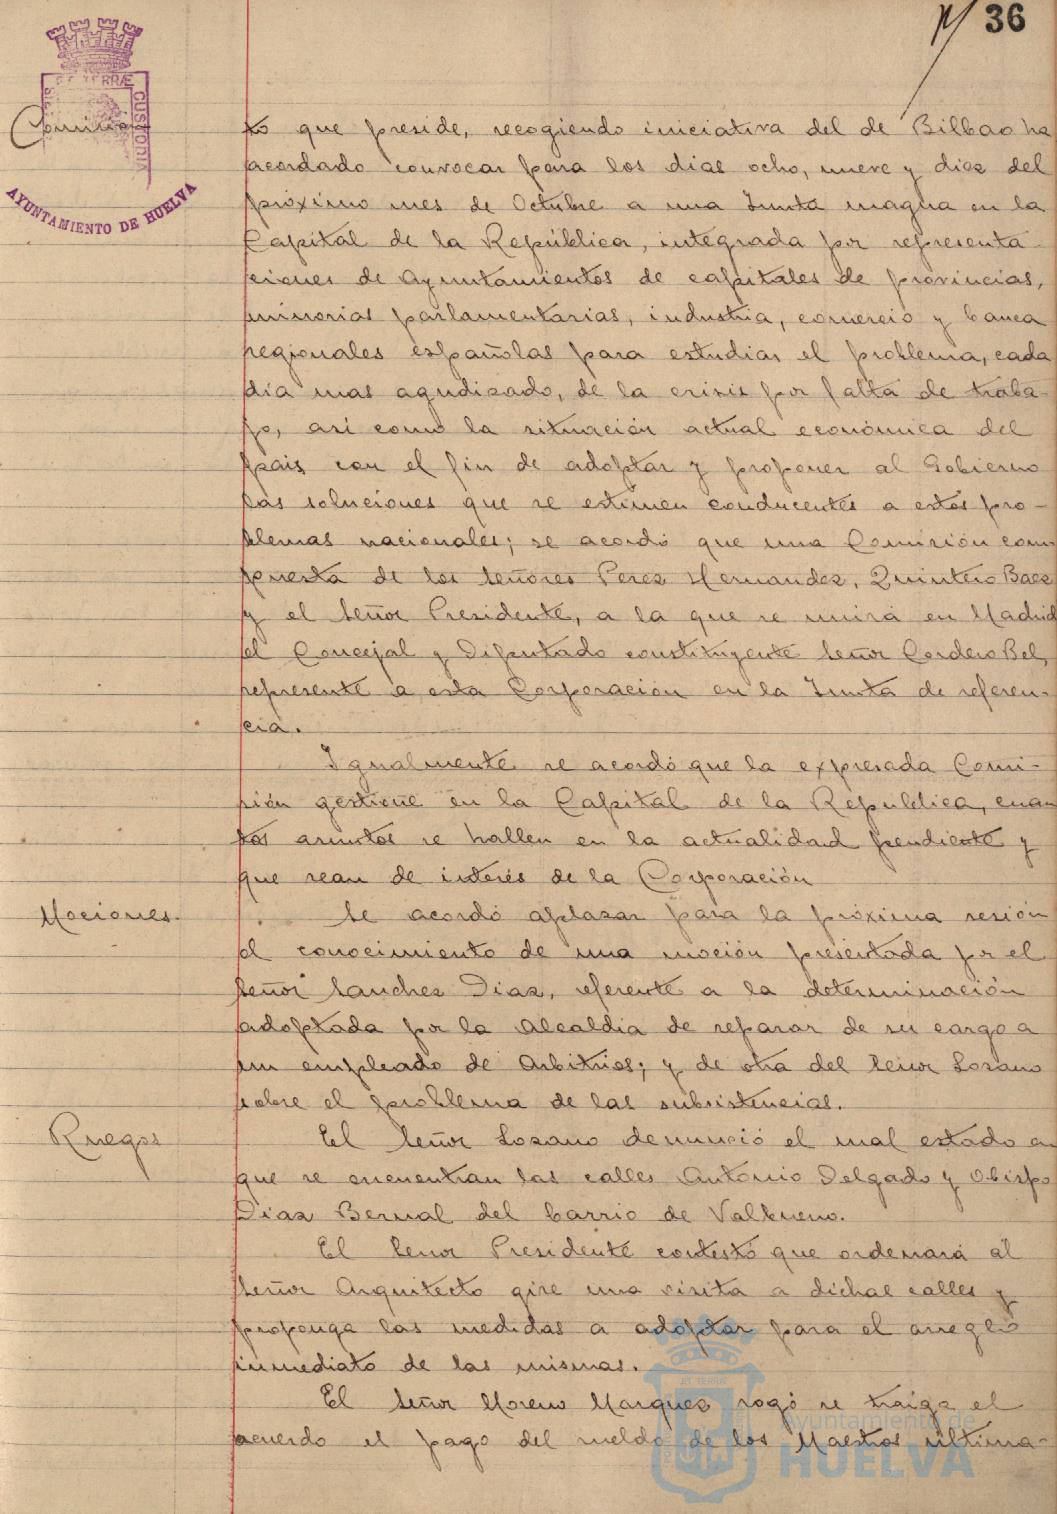 36
ET TERRÆ CUSTODIA
AYUNTAMIENTO DE HUELVA
Comisión
to que preside, recogiendo iniciativa del de Bilbao ha
acordado convocar para los dias ocho, nueve y diez del
próximo mes de Octubre a una Junta magna en la
Capital de la República, integrada por representa-
ciones de Ayuntamientos de capitales de provincias,
minorias parlamentarias, industria, comercio y banca
regionales españolas para estudiar el problema, cada
día mas agudizado, de la crisis por falta de traba-
jo, así como la situación actual económica del
pais con el fin de adoptar y proponer al Gobierno
las soluciones que se estimen conducentes a estos pro-
blemas nacionales; se acordó que una Comisión com-
puesta de los señores Perez Hernandez, Quintero Baez
y el señor Presidente, a la que se unirá en Madrid
el Concejal y Diputado constituyente señor Cordero Bel,
represente a esta Corporación en la Junta de referen-
cia.
Igualmente se acordó que la expresada Comi-
sión gestione en la Capital de la Republica, cuan-
tos asuntos se hallen en la actualidad pendiente y
que sean de interés de la Corporación
Mociones.
Se acordó aplazar para la próxima sesión
el conocimiento de una moción presentada por el
señor Sanchez Diaz, referente a la determinación
adoptada por la Alcaldia de separar de su cargo a
un empleado de Arbitrios; y de otra del señor Lozano
sobre el problema de las subsistencias.
Ruegos
El señor Lozano denunció el mal estado en
que se encuentran las calles Antonio Delgado y Obispo
Díaz Bernal del barrio de Valbueno.
El Senor Presidente contestó que ordenará al
señor Arquitecto gire una visita a dichas calles y
proponga las medidas a adoptar para el arreglo
inmediato de las mismas.
El señor Moreno Marquez rogó se traiga el
acuerdo el pago del sueldo de los Maestros ultima-
Ayuntamiento de
HUELVA